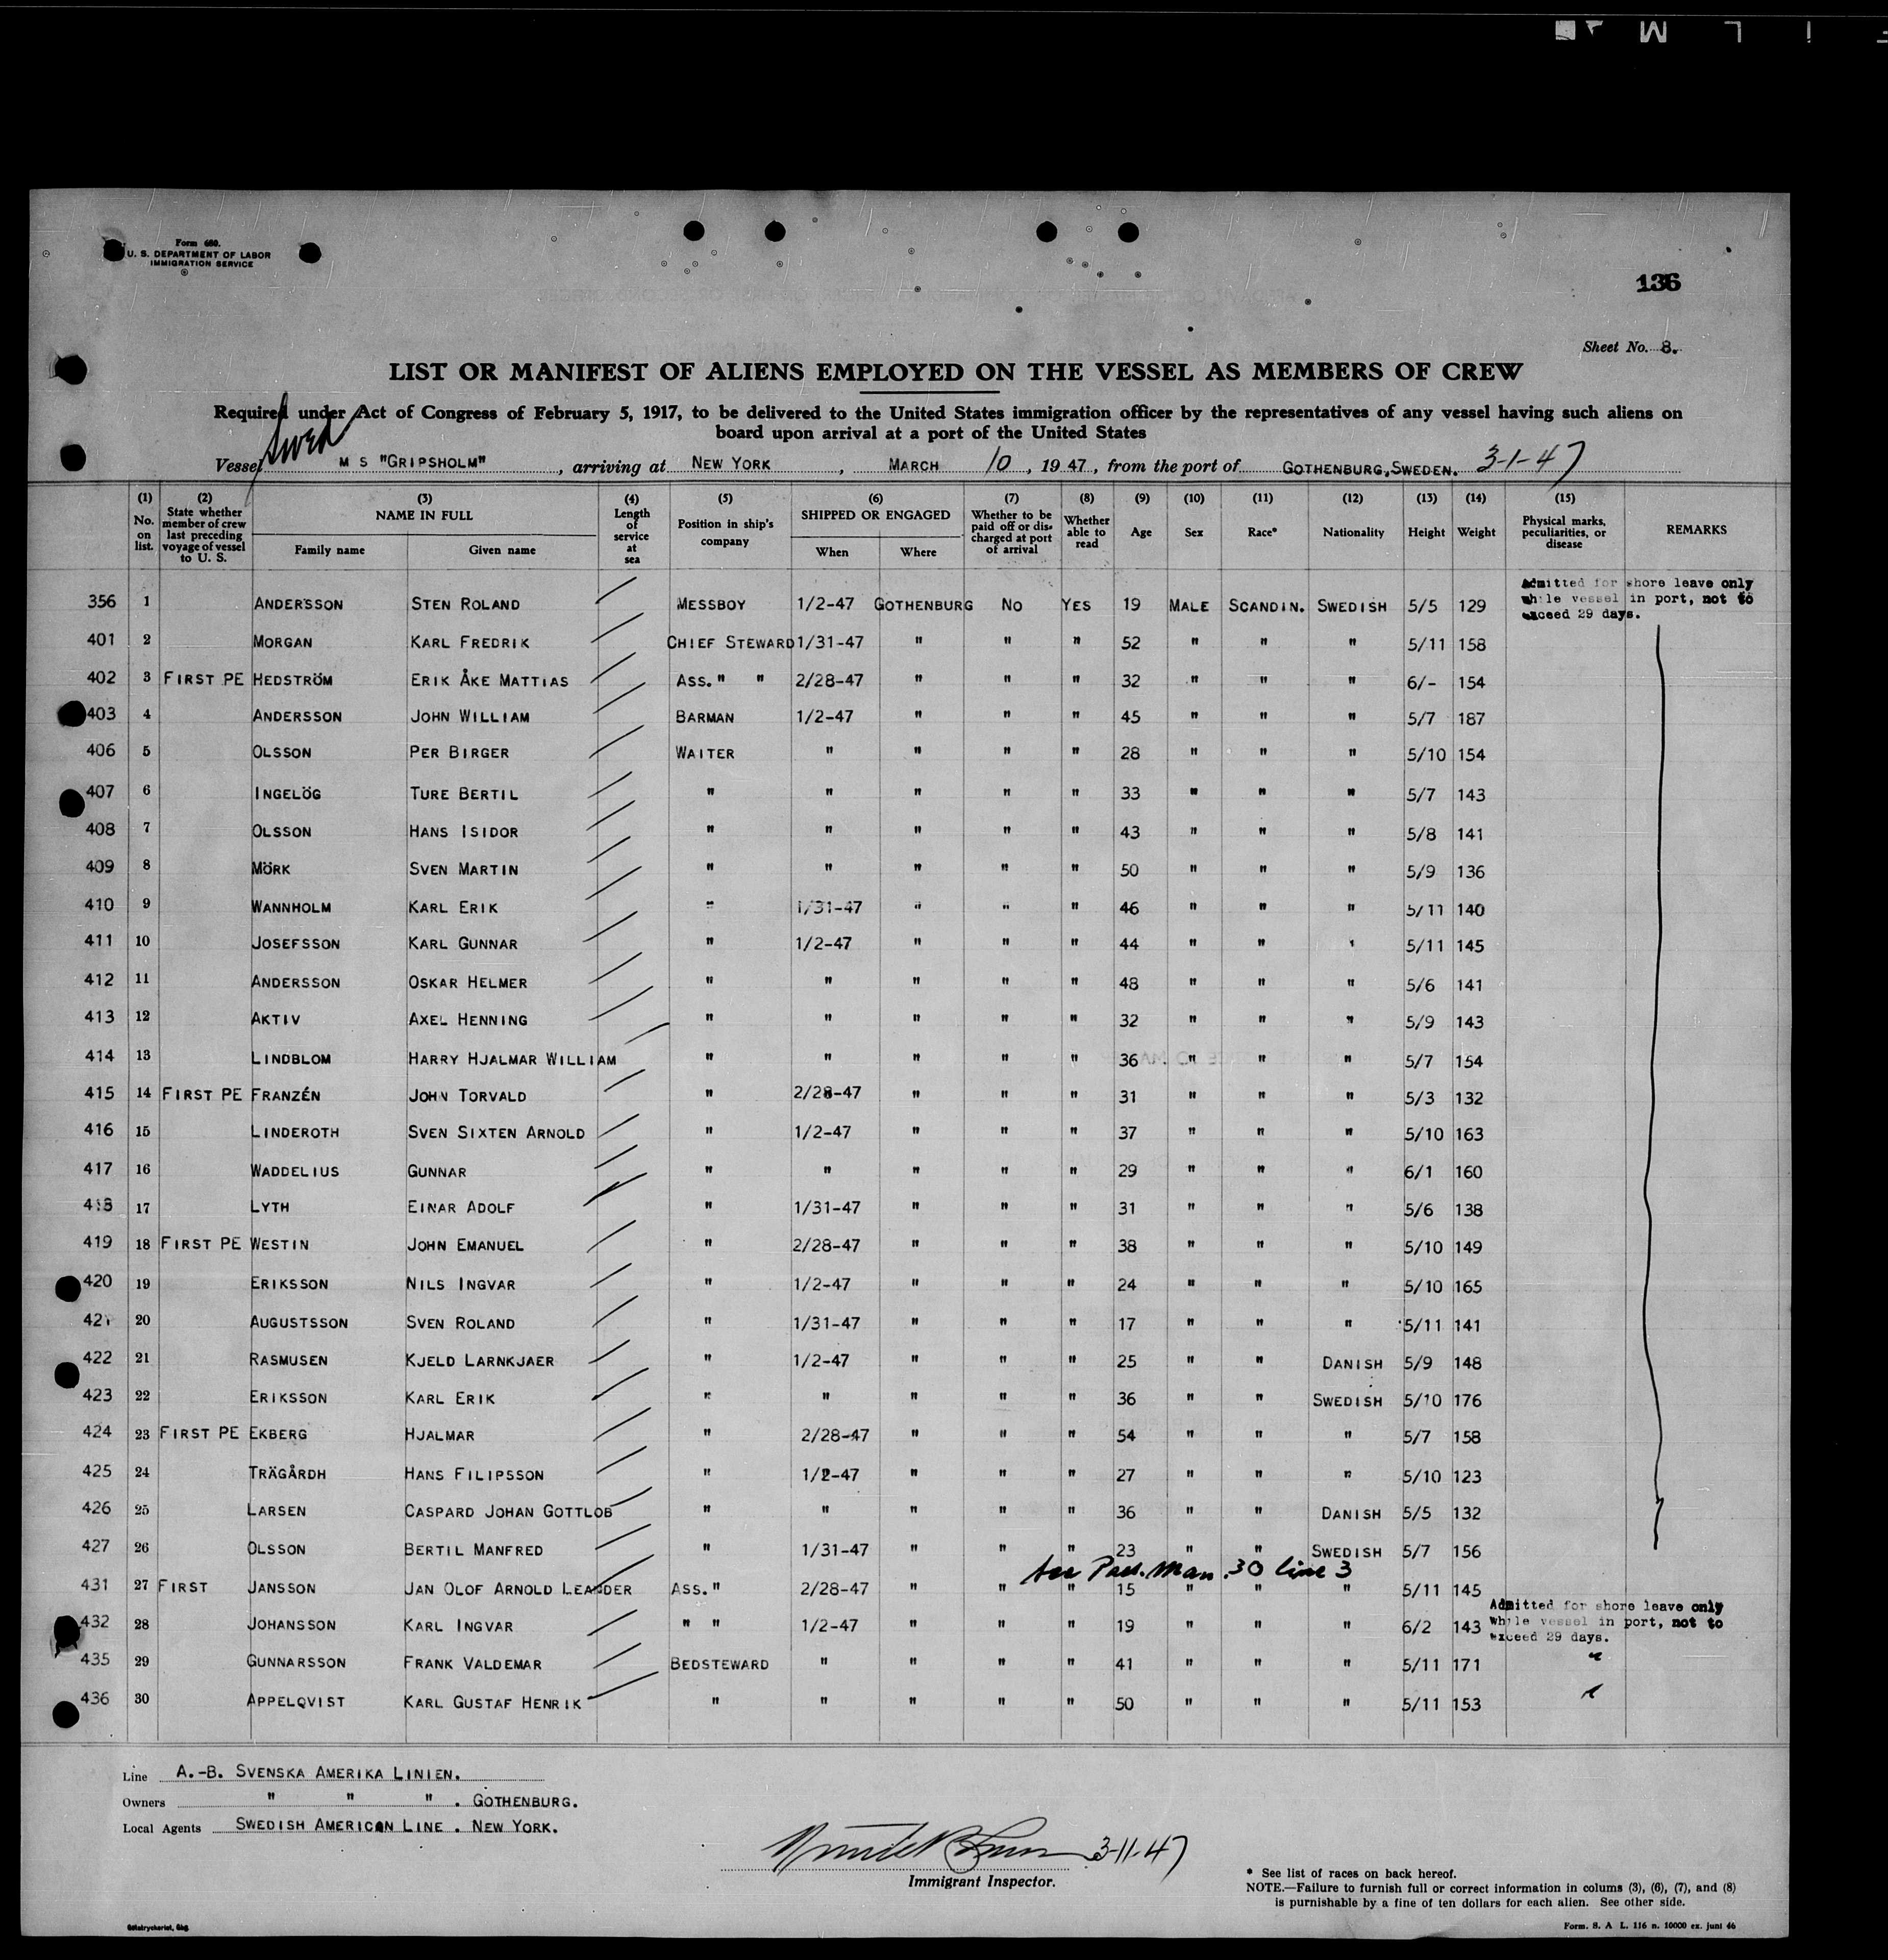 Form 680.
U. S. DEPARTMENT OF LABOR
IMMIGRATION SERVICE
136
Sheet No. 8.
LIST OR MANIFEST OF ALIENS EMPLOYED ON THE VESSEL AS MEMBERS OF CREW
Required under Act of Congress of February 5, 1917, to be delivered to the United States immigration officer by the representatives of any vessel having such aliens on
board upon arrival at a port of the United States
Swed
Vessel M S "GRIPSHOLM" , arriving at NEW YORK , MARCH 10 , 19 47 , from the port of GOTHENBURG, SWEDEN. 3-1-47
(1) No. on list.
(2) State whether member of crew last preceding voyage of vessel to U. S.
(3) NAME IN FULL Family name Given name
(4) Length of service at sea
(5) Position in ship's company
(6) SHIPPED OR ENGAGED When Where
(7) Whether to be paid off or discharged at port of arrival
(8) Whether able to read
(9) Age
(10) Sex
(11) Race*
(12) Nationality
(13) Height
(14) Weight
(15) Physical marks, peculiarities, or disease
REMARKS
Admitted for shore leave only
while vessel in port, not to
exceed 29 days.
356 1 ANDERSSON STEN ROLAND MESSBOY 1/2-47 GOTHENBURG NO YES 19 MALE SCANDIN. SWEDISH 5/5 129
401 2 MORGAN KARL FREDRIK CHIEF STEWARD 1/31-47 " " " 52 " " " 5/11 158
402 3 FIRST PE HEDSTRÖM ERIK ÅKE MATTIAS ASS. " " 2/28-47 " " " 32 " " " 6/- 154
403 4 ANDERSSON JOHN WILLIAM BARMAN 1/2-47 " " " 45 " " " 5/7 187
406 5 OLSSON PER BIRGER WAITER " " " " 28 " " " 5/10 154
407 6 INGELÖG TURE BERTIL " " " " " 33 " " " 5/7 143
408 7 OLSSON HANS ISIDOR " " " " " 43 " " " 5/8 141
409 8 MÖRK SVEN MARTIN " " " " " 50 " " " 5/9 136
410 9 WANNHOLM KARL ERIK " 1/31-47 " " " 46 " " " 5/11 140
411 10 JOSEFSSON KARL GUNNAR " 1/2-47 " " " 44 " " " 5/11 145
412 11 ANDERSSON OSKAR HELMER " " " " " 48 " " " 5/6 141
413 12 AKTIV AXEL HENNING " " " " " 32 " " " 5/9 143
414 13 LINDBLOM HARRY HJALMAR WILLIAM " " " " " 36 " " " 5/7 154
415 14 FIRST PE FRANZÉN JOHN TORVALD " 2/28-47 " " " 31 " " " 5/3 132
416 15 LINDEROTH SVEN SIXTEN ARNOLD " 1/2-47 " " " 37 " " " 5/10 163
417 16 WADDELIUS GUNNAR " " " " " 29 " " " 6/1 160
418 17 LYTH EINAR ADOLF " 1/31-47 " " " 31 " " " 5/6 138
419 18 FIRST PE WESTIN JOHN EMANUEL " 2/28-47 " " " 38 " " " 5/10 149
420 19 ERIKSSON NILS INGVAR " 1/2-47 " " " 24 " " " 5/10 165
421 20 AUGUSTSSON SVEN ROLAND " 1/31-47 " " " 17 " " " 5/11 141
422 21 RASMUSEN KJELD LARNKJAER " 1/2-47 " " " 25 " " DANISH 5/9 148
423 22 ERIKSSON KARL ERIK " " " " " 36 " " SWEDISH 5/10 176
424 23 FIRST PE EKBERG HJALMAR " 2/28-47 " " " 54 " " " 5/7 158
425 24 TRÄGÅRDH HANS FILIPSSON " 1/2-47 " " " 27 " " " 5/10 123
426 25 LARSEN CASPARD JOHAN GOTTLOB " " " " " 36 " " DANISH 5/5 132
427 26 OLSSON BERTIL MANFRED " 1/31-47 " " " 23 " " SWEDISH 5/7 156
See Pass. Man. 30 line 3
431 27 FIRST JANSSON JAN OLOF ARNOLD LEANDER ASS. " 2/28-47 " " " 15 " " " 5/11 145
Admitted for shore leave only
while vessel in port, not to
exceed 29 days.
432 28 JOHANSSON KARL INGVAR " " 1/2-47 " " " 19 " " " 6/2 143
435 29 GUNNARSSON FRANK VALDEMAR BEDSTEWARD " " " " 41 " " " 5/11 171 "
436 30 APPELQVIST KARL GUSTAF HENRIK " " " " " 50 " " " 5/11 153 "
Line A.-B. SVENSKA AMERIKA LINIEN.
Owners " " " . GOTHENBURG.
Local Agents SWEDISH AMERICAN LINE . NEW YORK.
3-11-47
Immigrant Inspector.
* See list of races on back hereof.
NOTE.—Failure to furnish full or correct information in colums (3), (6), (7), and (8)
is purnishable by a fine of ten dollars for each alien. See other side.
Götatryckeriet, Gbg.
Form. S. A L. 116 n. 10000 ex. juni 46